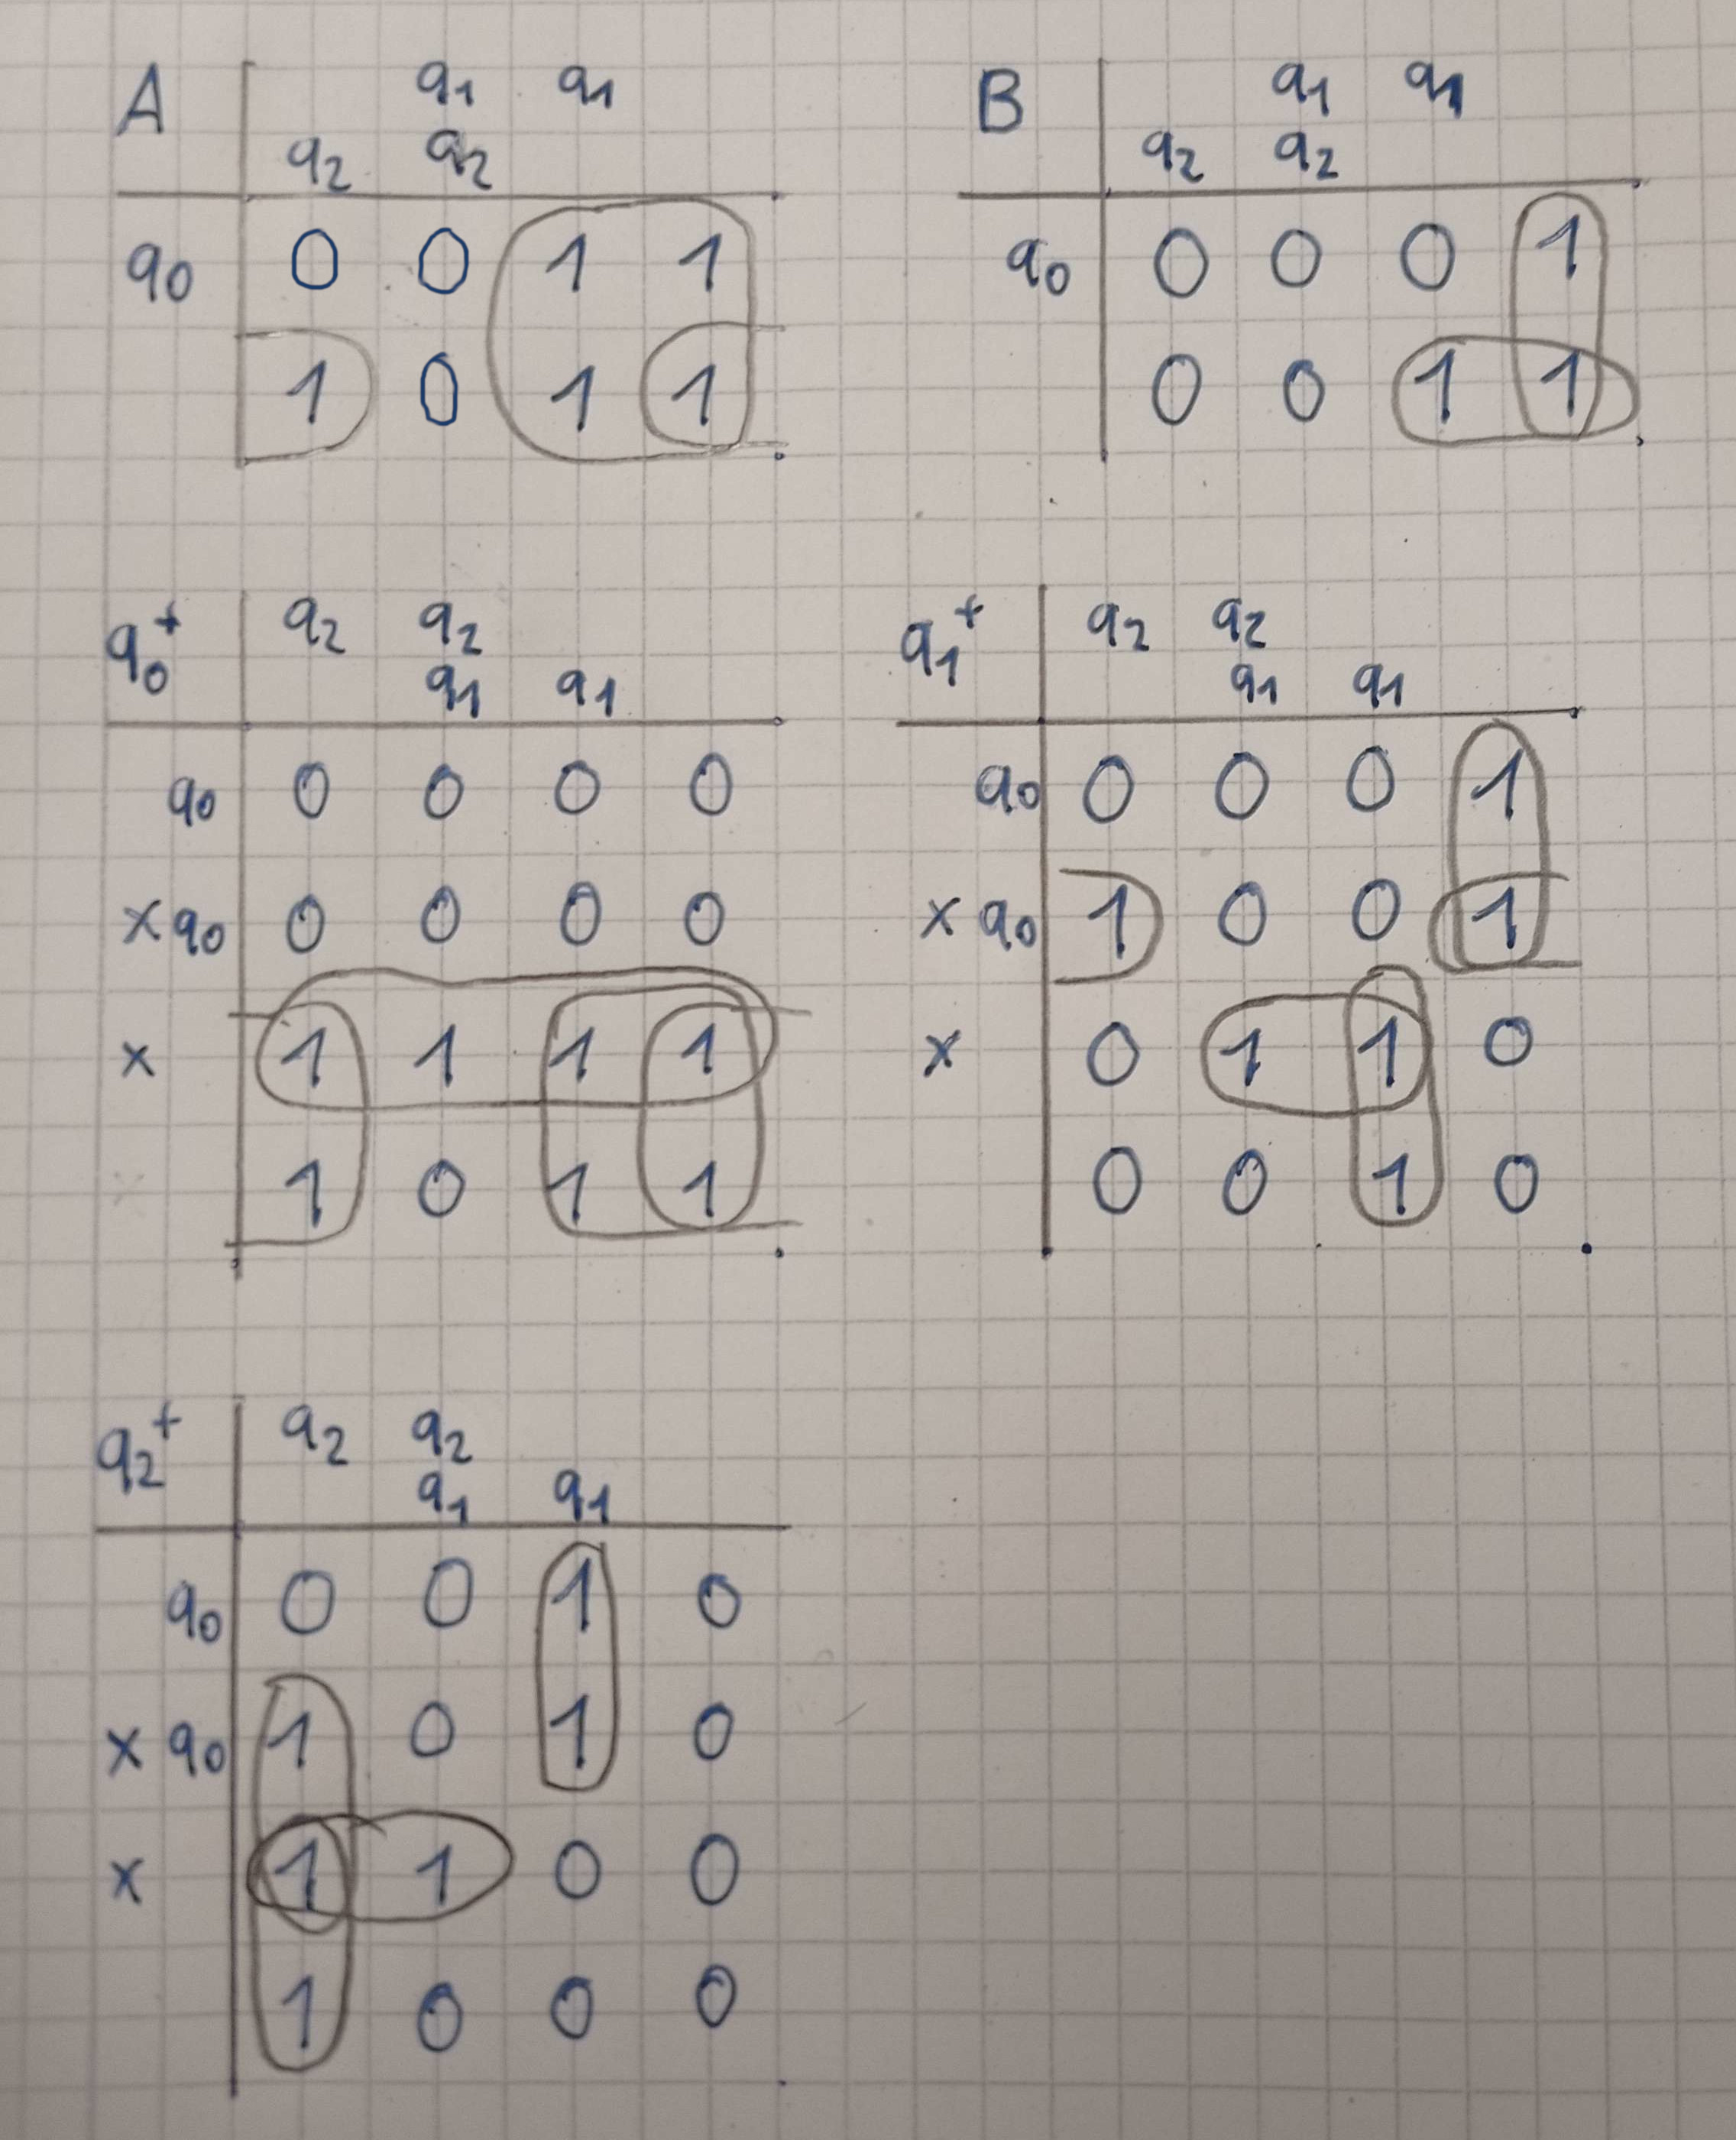 A q1 q1
q2 q2
q0 0 0 1 1
1 0 1 1
B q1 q1
q2 q2
q0 0 0 0 1
0 0 1 1
q0+ q2 q2
q1 q1
q0 0 0 0 0
x q0 0 0 0 0
x 1 1 1 1
1 0 1 1
q1+ q2 q2
q1 q1
q0 0 0 0 1
x q0 1 0 0 1
x 0 1 1 0
0 0 1 0
q2+ q2 q2
q1 q1
q0 0 0 1 0
x q0 1 0 1 0
x 1 1 0 0
1 0 0 0